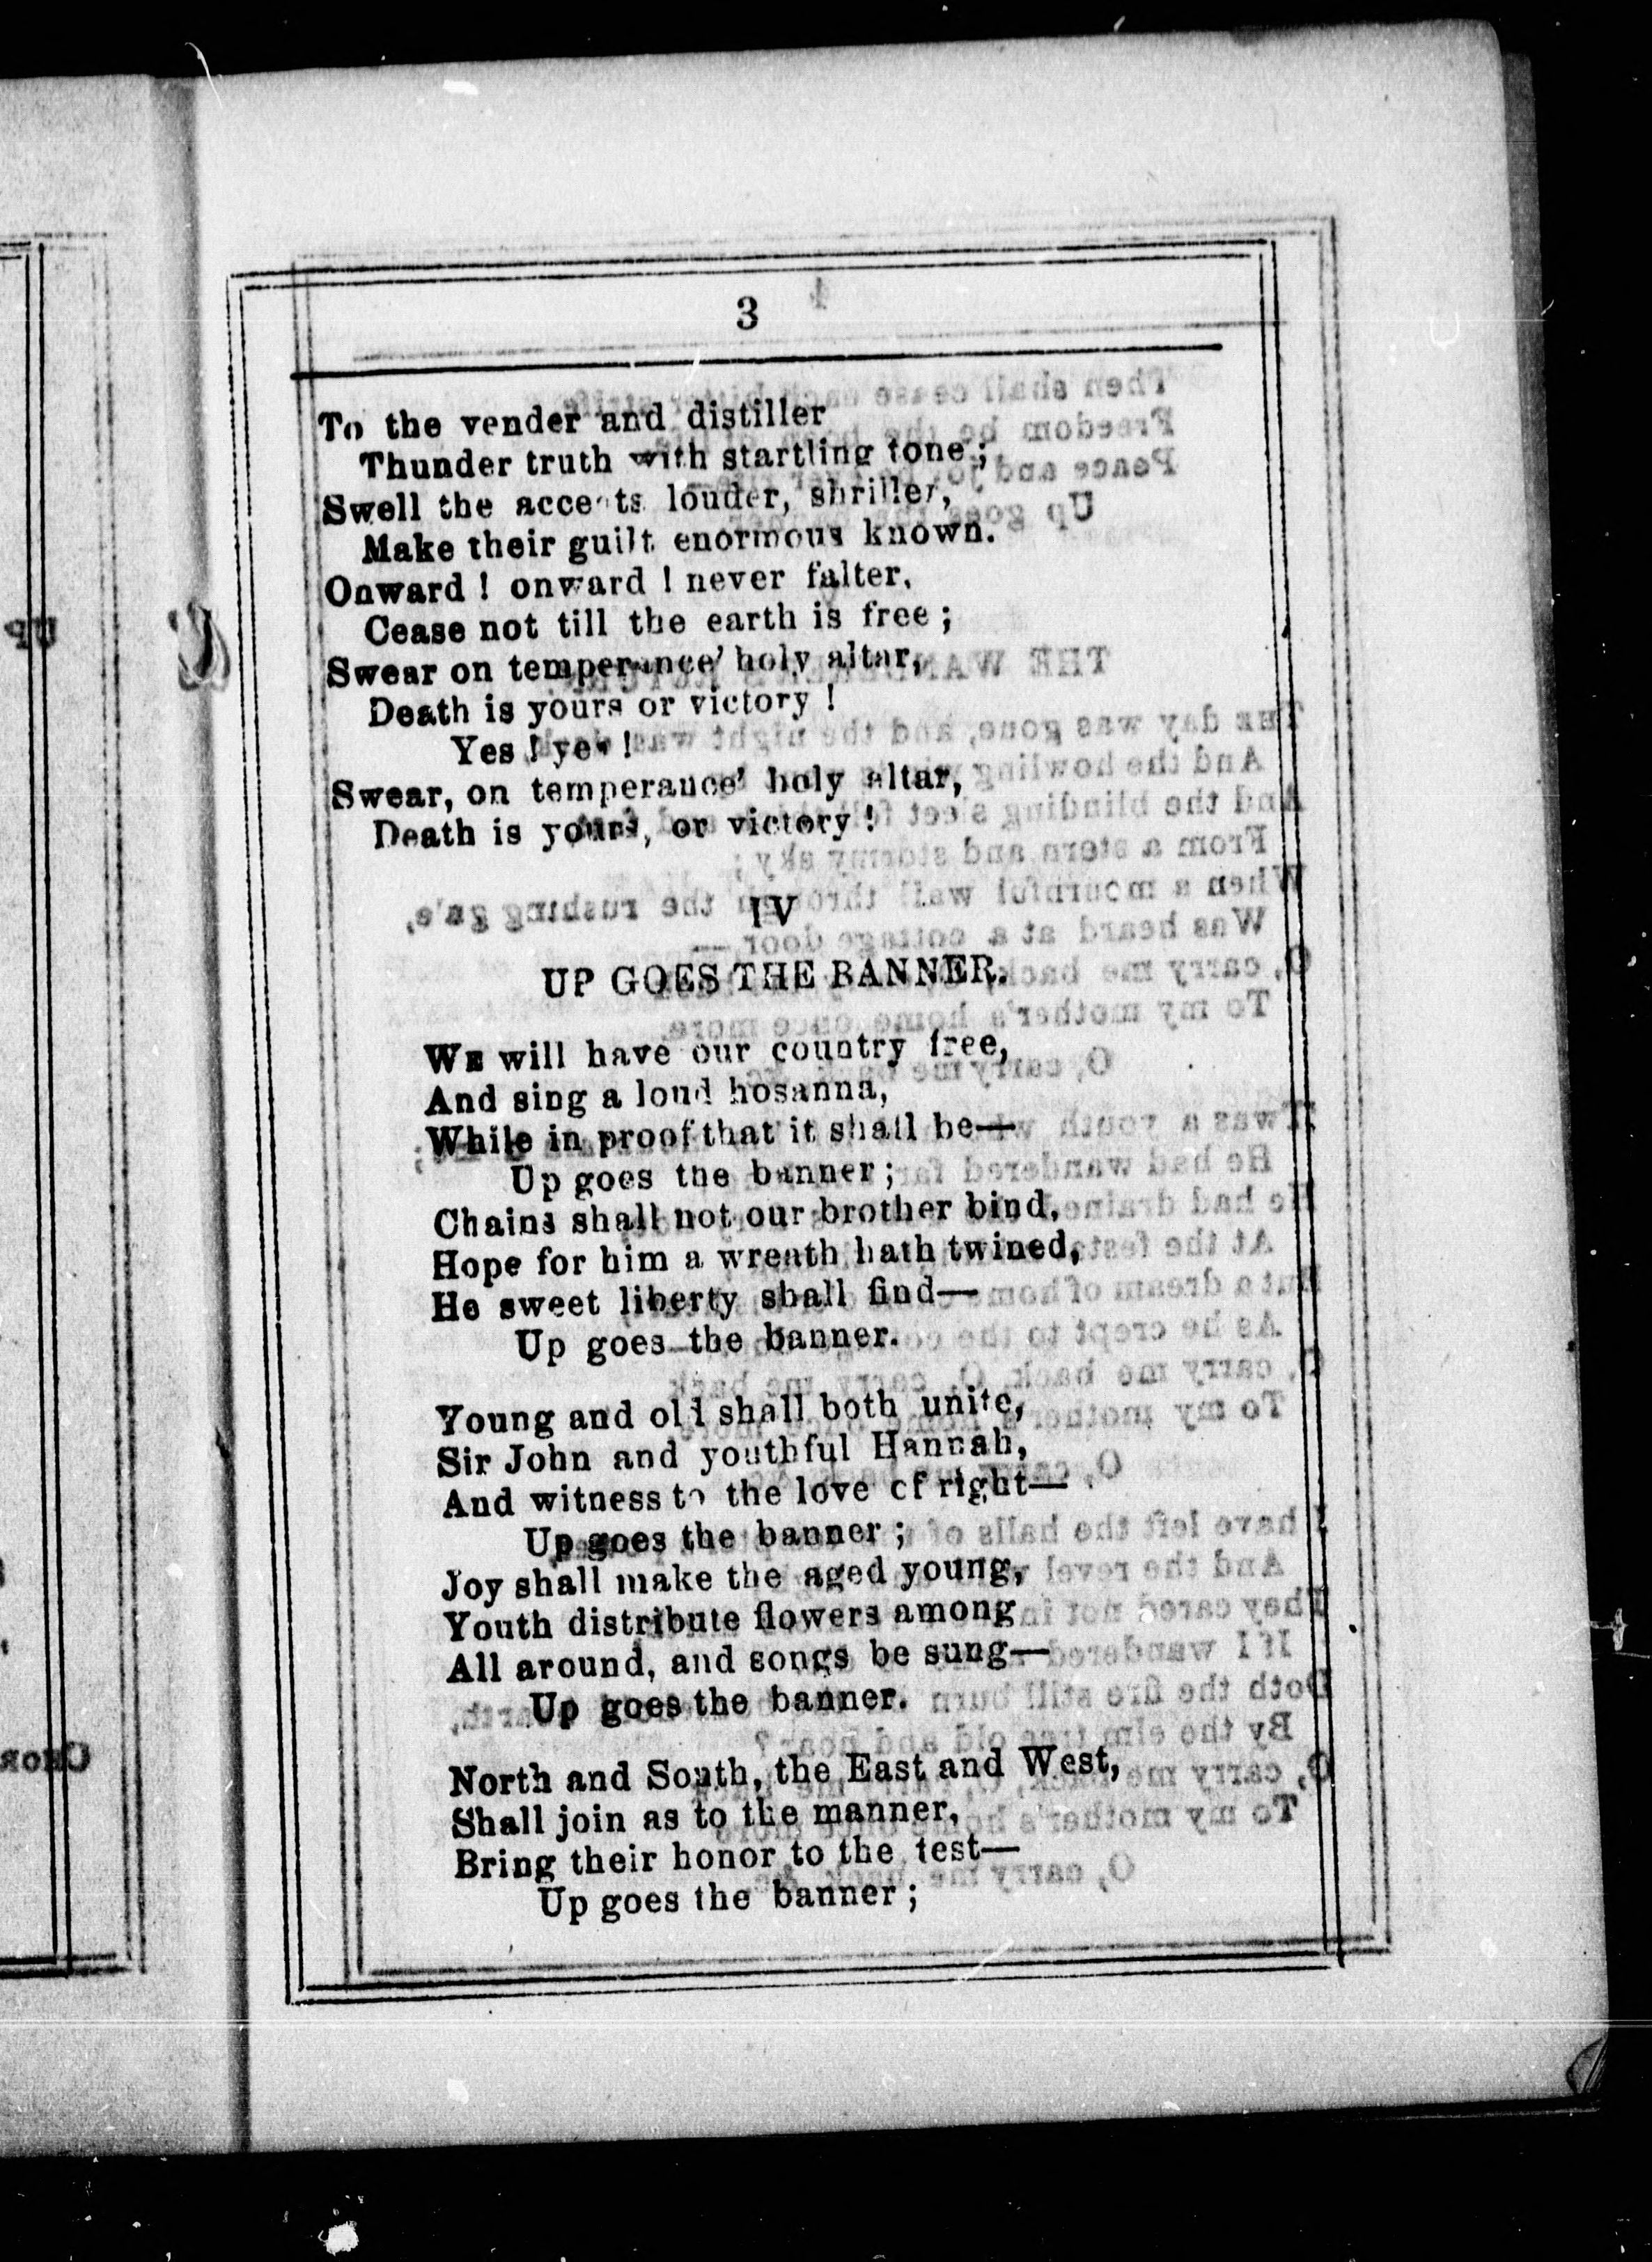 3
To the vender and distiller
Thunder truth with startling tone ;
Swell the accents louder, shriller,
Make their guilt enormous known.
Onward ! onward ! never falter,
Cease not till the earth is free ;
Swear on temperance' holy altar,
Death is yours or victory !
Yes ! yes !
Swear, on temperance' holy altar,
Death is yours, or victory !
IV
UP GOES THE BANNER.
WE will have our country free,
And sing a loud hosanna,
While in proof that it shall be—
Up goes the banner ;
Chains shall not our brother bind,
Hope for him a wreath hath twined,
He sweet liberty shall find—
Up goes the banner.
Young and old shall both unite,
Sir John and youthful Hannah,
And witness to the love of right—
Up goes the banner ;
Joy shall make the aged young,
Youth distribute flowers among
All around, and songs be sung—
Up goes the banner.
North and South, the East and West,
Shall join as to the manner,
Bring their honor to the test—
Up goes the banner ;